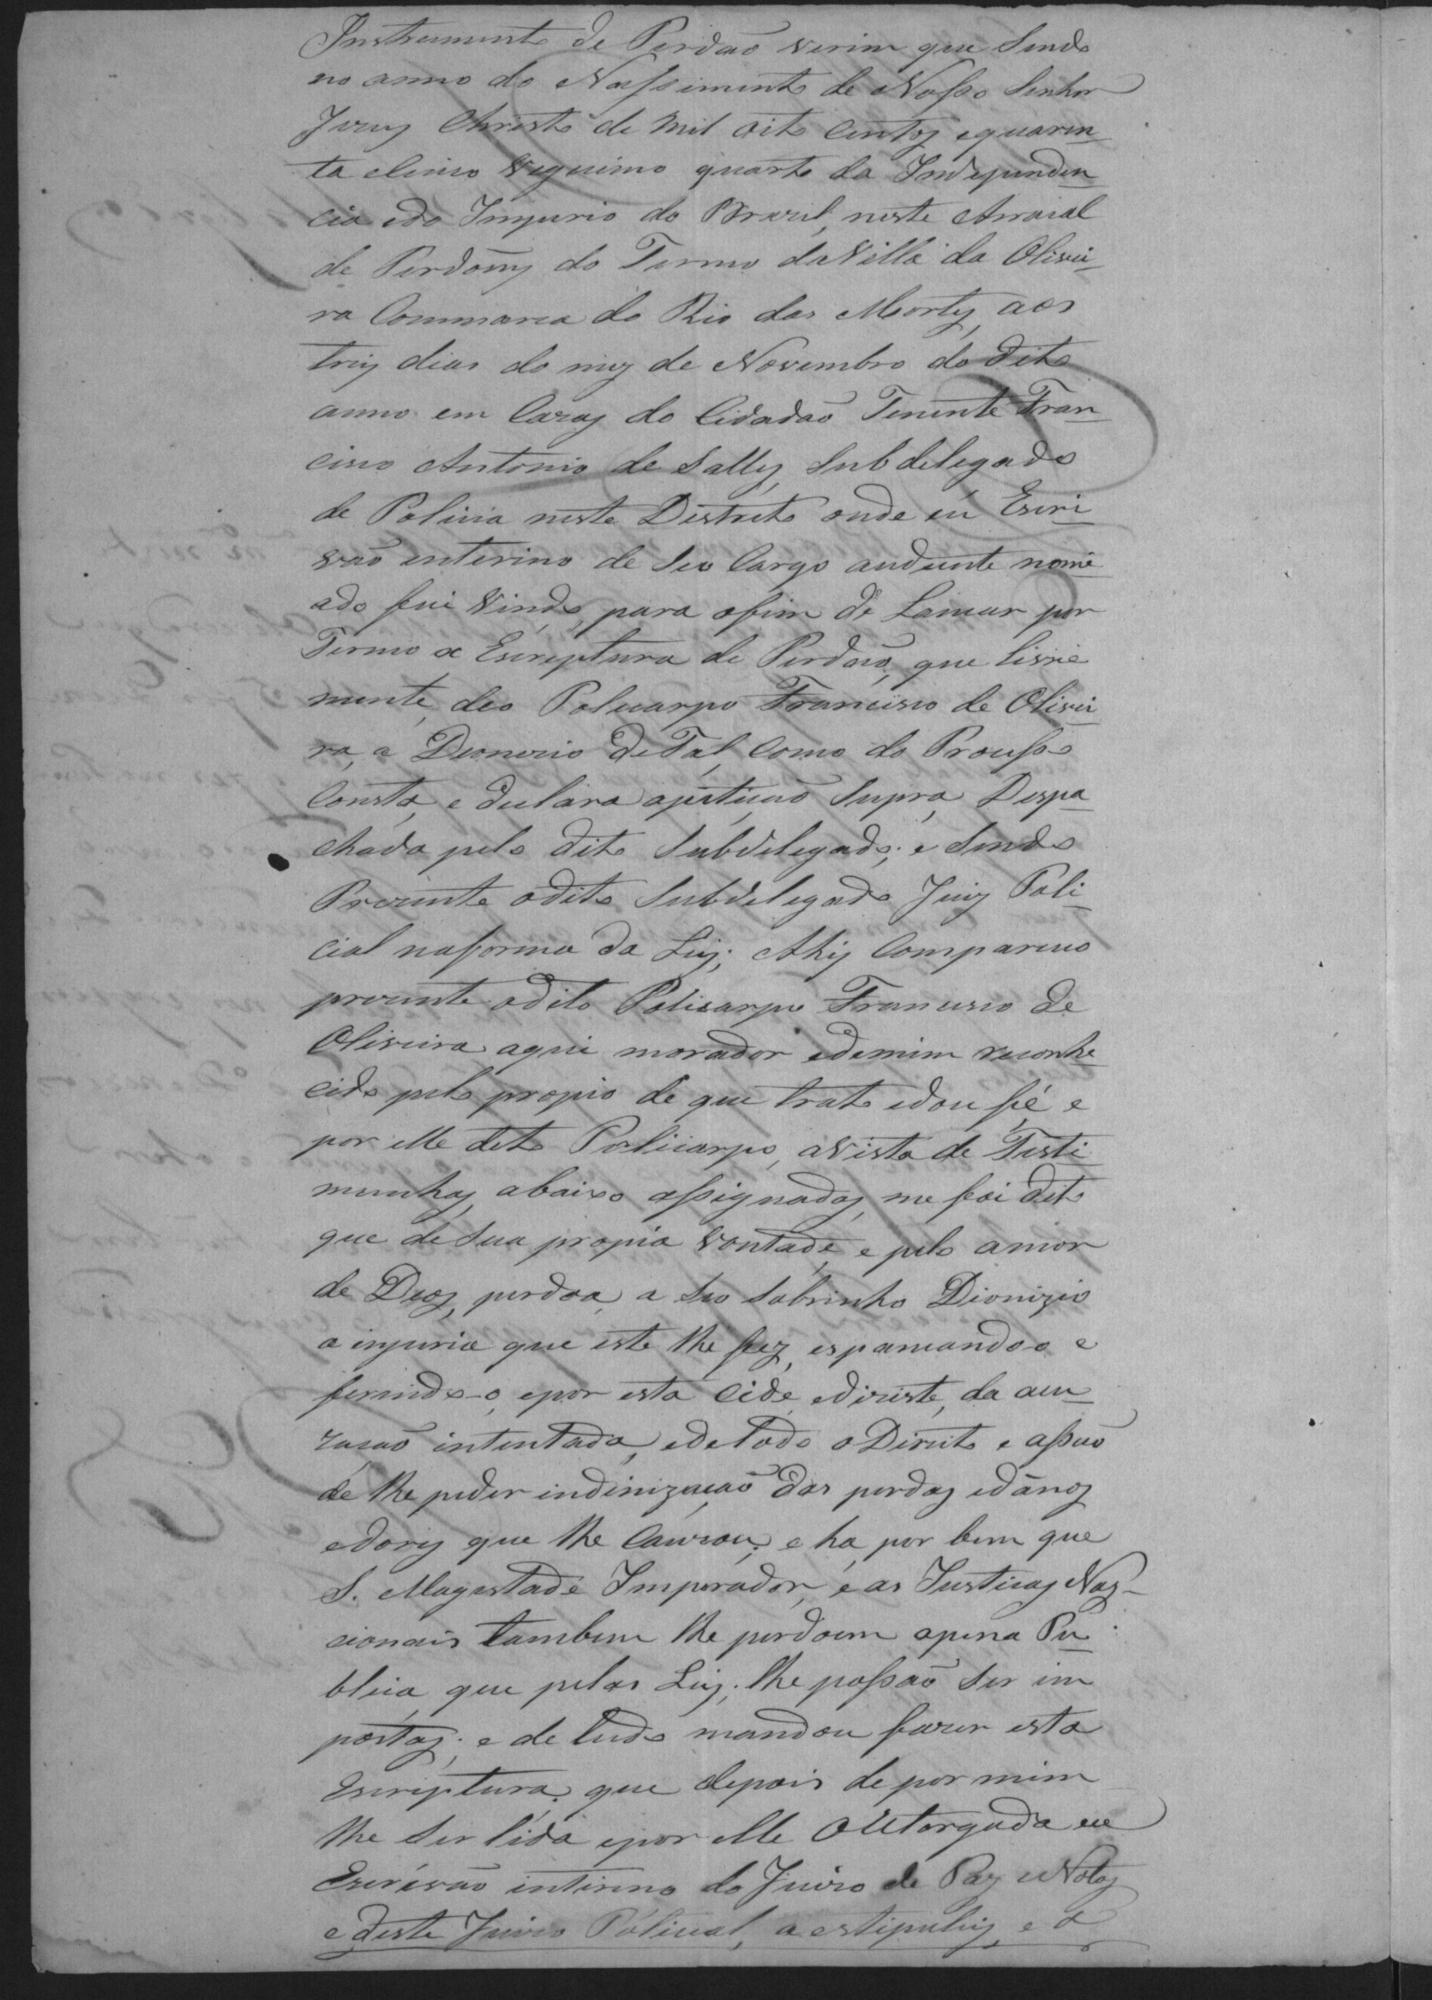 Instrumento de Perdaõ virim que sendo
no anno do Nassimento de Nosso Senhor
Jezus Christo de mil oito centos equaren-
ta eSinco vigesimo quarto da Independen-
cia edo Imperio do Brazil, neste Arraial
de Perdoẽns do Termo daVilla da Olivei-
ra Commarca do Rio das Mortes, aos
treis dias do mez de Novembro do dito
anno em Cazas do Cidadaõ Tenente Fran-
cisco Antonio de Salles, Subdelegado
de Policia neste Destrito onde eú Escri-
vaõ enterino de Seo Cargo andiente nome-
ado fui vindo, para ofim de Lansar por
Termo a Escreptura de Perdaõ, que livre
mente, deo Policarpo Francisco de Olivei-
ra, a Deonizio deTal, Como do Prosseso
Consta, e declara apetiçaõ Supra, Despa-
chada pelo dito Subdelegado; e Sendo
Prezente odito Subdelegado Juiz Poli-
cial naforma da Lei; Ahy Compareceo
prezente odito Policarpo Francisco de
Oliveira aqui morador edemim reconhe-
cido pelo propio de que trato edou fé e
por elle dito Policarpo, avista de Testi-
munhas, abaixo assignadas, me foi dito
que de Sua propia vontade, e pelo amor
de Deos, perdoa, a Seo Sobrinho Dionizio
a injuria que este lhe fez, espancando-o e
ferindo-o, epor esta Cede, edeziste, da acu-
zacaõ intentada, edetodo o Direito e assaõ
de lhe peder indinizaçaõ das perdas edãnos
edores que lhe Cauzou; e ha, por bem que
S. Magestade Imperador, e as Justicas Nas-
cionais tambem lhe perdoem apena Pu-
blica, que pelas Leis; lhe possaõ Ser im
postas; e de tudo mandou fazer esta
Escriptura; que depois de por mim
lhe Ser lida epor elle Outorgada eu
Escrivaõ intirino do Juizo de Paz eNotas
e deste Juizo Policial, a estipuley, e a